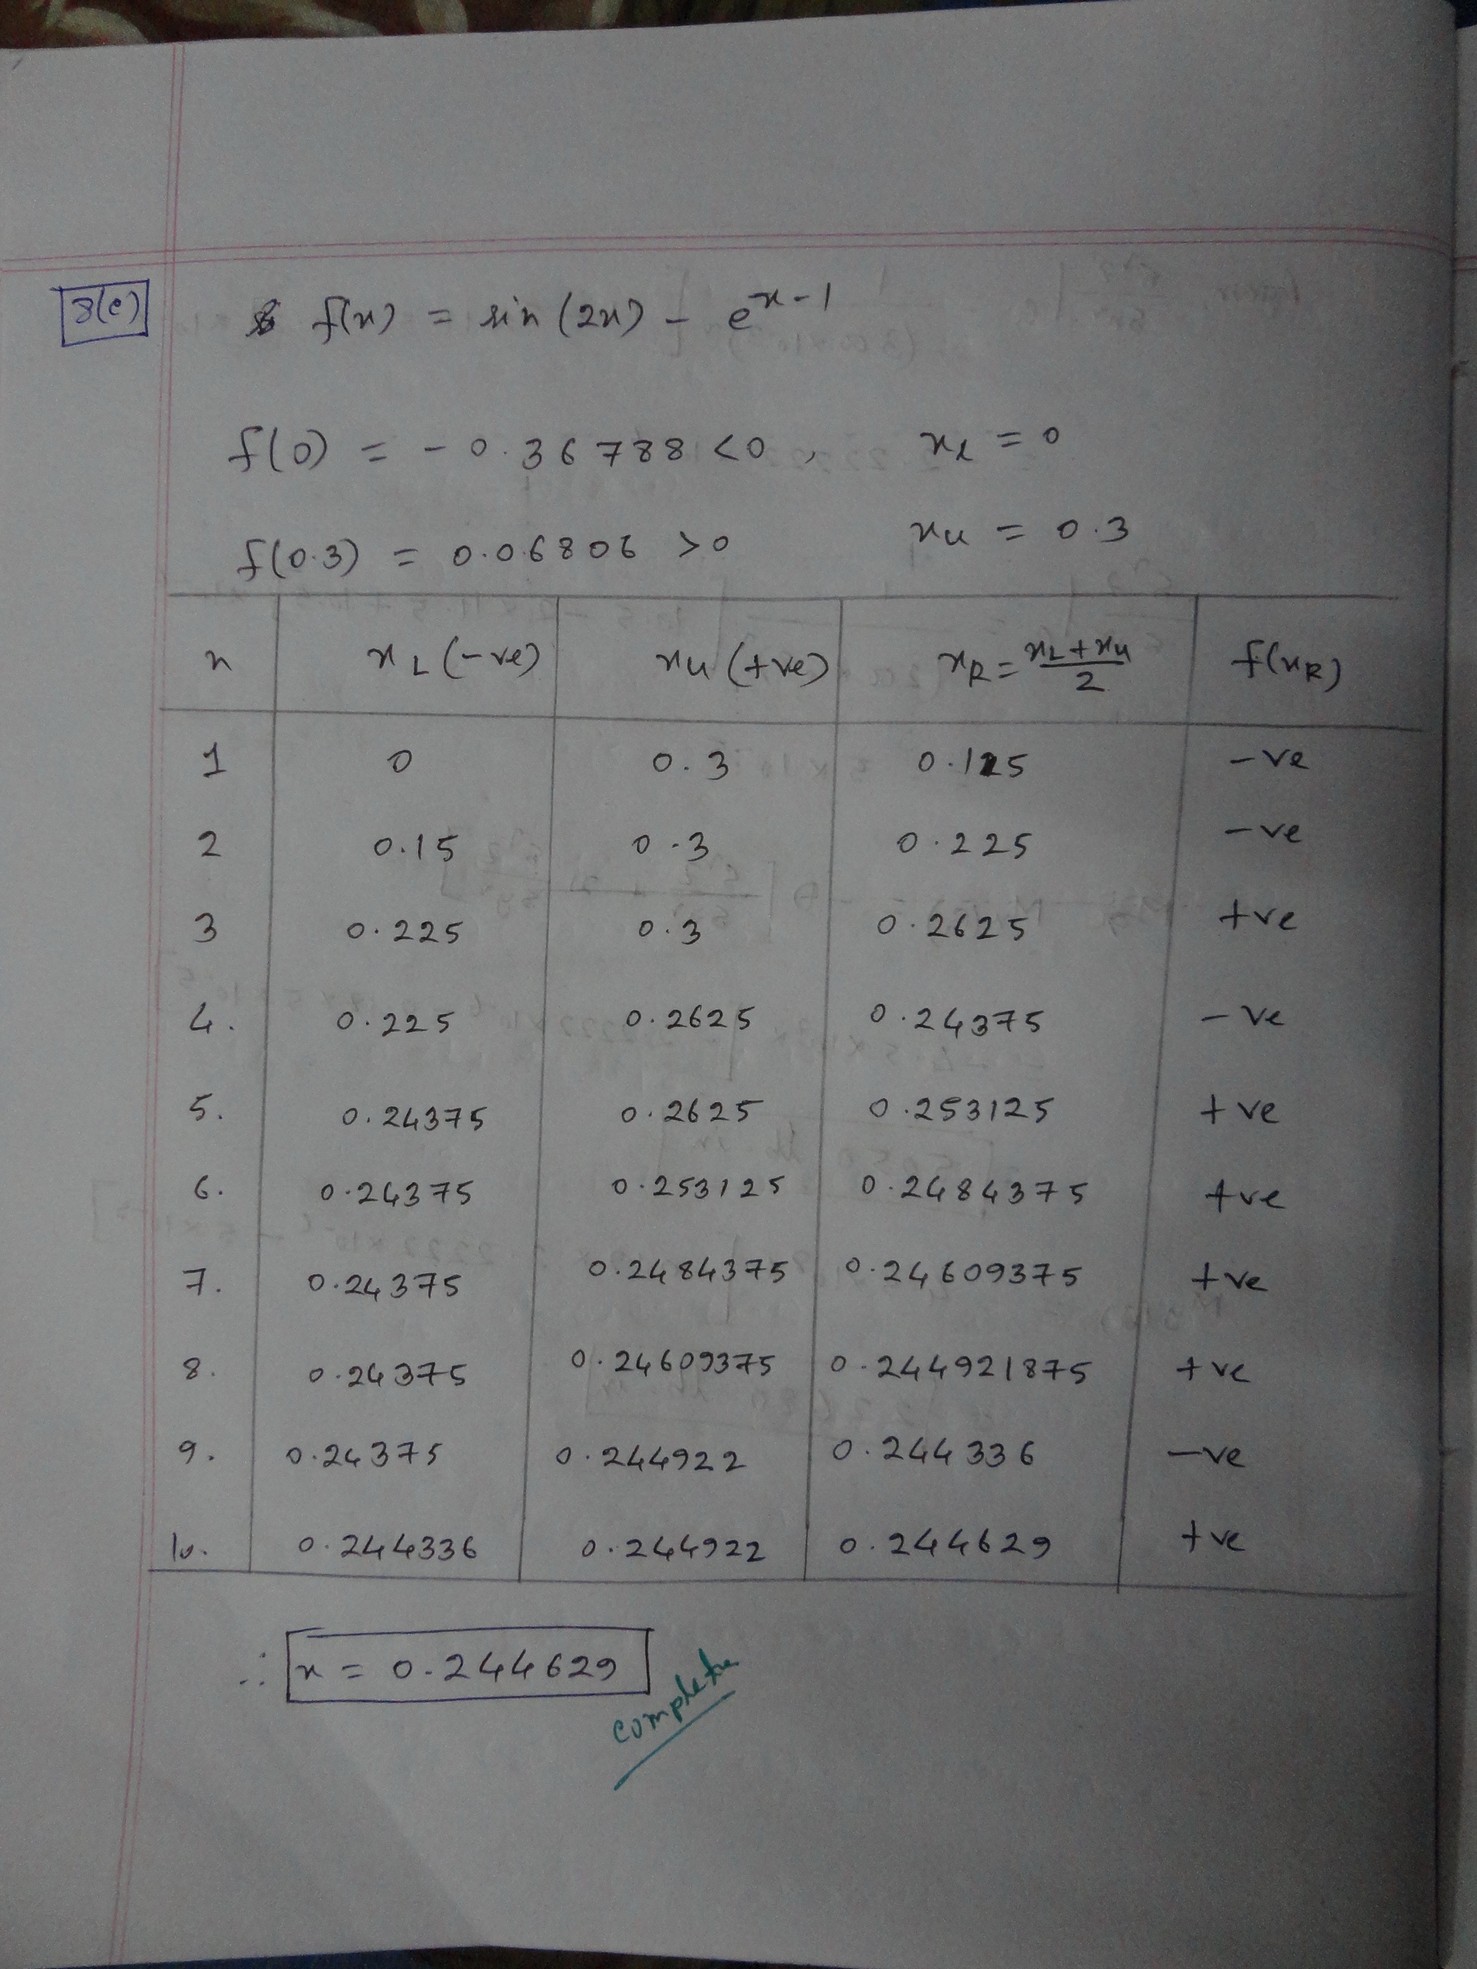 8(e)
f(x) = sin (2x) - e^x-1
f(0) = - 0.36788 < 0 , xL = 0
f(0.3) = 0.06806 > 0 xu = 0.3
n xL (-ve) xu (+ve) xR = xL + xu / 2 f(xR)
1 0 0.3 0.125 -ve
2 0.15 0.3 0.225 -ve
3 0.225 0.3 0.2625 +ve
4. 0.225 0.2625 0.24375 -ve
5. 0.24375 0.2625 0.253125 +ve
6. 0.24375 0.253125 0.2484375 +ve
7. 0.24375 0.2484375 0.24609375 +ve
8. 0.24375 0.24609375 0.244921875 +ve
9. 0.24375 0.244922 0.244336 -ve
10. 0.244336 0.244922 0.244629 +ve
∴ x = 0.244629
complete